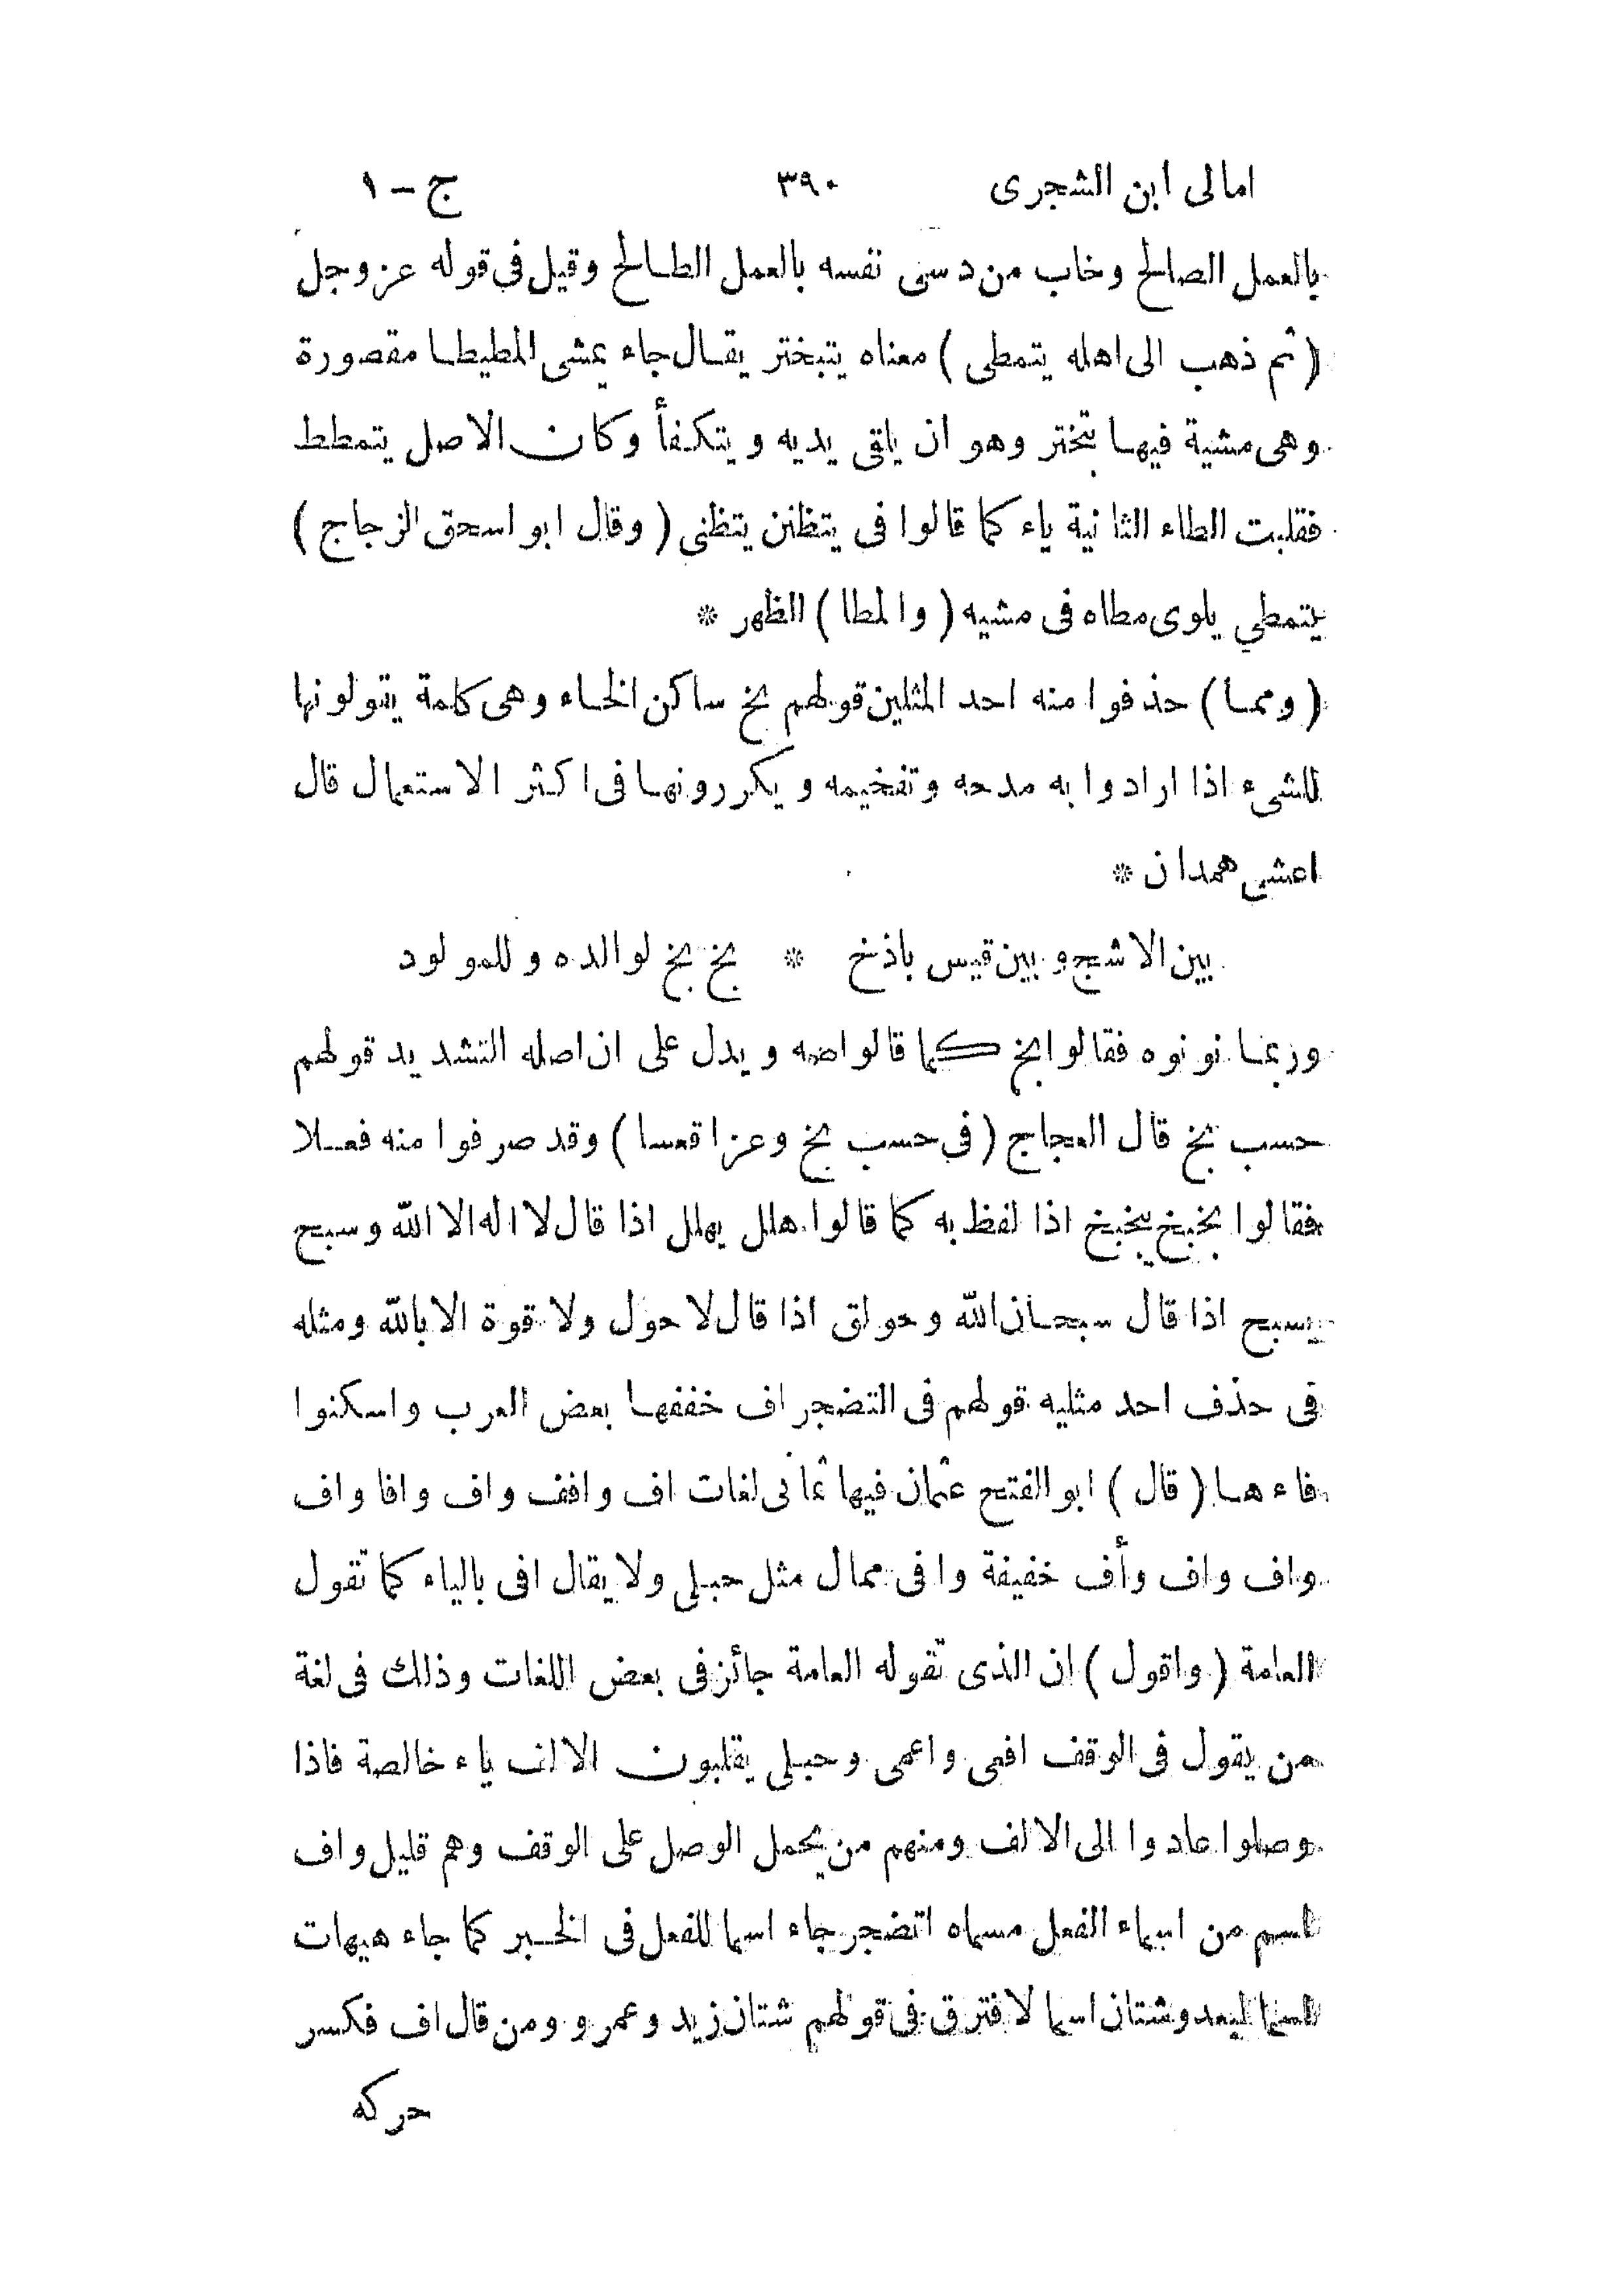 امالى ابن الشجرى ٣٩٠ ج - ١
بالعمل الصالح وخاب من دسى نفسه بالعمل الطالح وقيل فى قوله عز وجل
( ثم ذهب الى اهله يتمطى ) معناه يتبختر يقال جاء يمشى المطيطا مقصورة
وهى مشية فيها تبختر وهو ان يلقى يديه ويتكفأ وكان الاصل يتمطط
فقلبت الطاء الثانية ياء كما قالوا فى يتظنن يتظنى ( وقال ابو اسحق الزجاج )
يتمطي يلوى مطاه فى مشيه ( والمطا ) الظهر *
( ومما ) حذفوا منه احد المثلين قولهم بخ ساكن الخاء وهى كلمة يقولونها
للشىء اذا ارادوا به مدحه وتفخيمه ويكررونها فى اكثر الاستعمال قال
اعشى همدان *
بين الاشج وبين قيس باذخ * بخ بخ لوالده وللمولود
وربما نونوه فقالوا بخ كما قالوا صه ويدل على ان اصله التشديد قولهم
حسب بخ قال العجاج ( فى حسب بخ وعزا قعسا ) وقد صرفوا منه فعلا
فقالوا بخبخ يبخبخ اذا لفظ به كما قالوا هلل يهلل اذا قال لا اله الا الله وسبح
يسبح اذا قال سبحان الله وحولق اذا قال لا حول ولا قوة الا بالله ومثله
فى حذف احد مثليه قولهم فى التضجر اف خففها بعض العرب واسكنوا
فاءها ( قال ) ابو الفتح عثمان فيها ثمانى لغات اف وافف واف وافا واف
واف واف وأف خفيفة وافى ممال مثل حبلى ولا يقال افى بالياء كما تقول
العامة ( واقول ) ان الذى تقوله العامة جائز فى بعض اللغات وذلك فى لغة
من يقول فى الوقف افعى واعمى وحبلى يقلبون الالف ياء خالصة فاذا
وصلوا عادوا الى الالف ومنهم من يحمل الوصل على الوقف وهم قليل واف
اسم من اسماء الفعل مسماه اتضجر جاء اسما للفعل فى الخبر كما جاء هيهات
اسما لبعد وشتان اسما لافترق فى قولهم شتان زيد وعمرو ومن قال اف فكسر
حركه